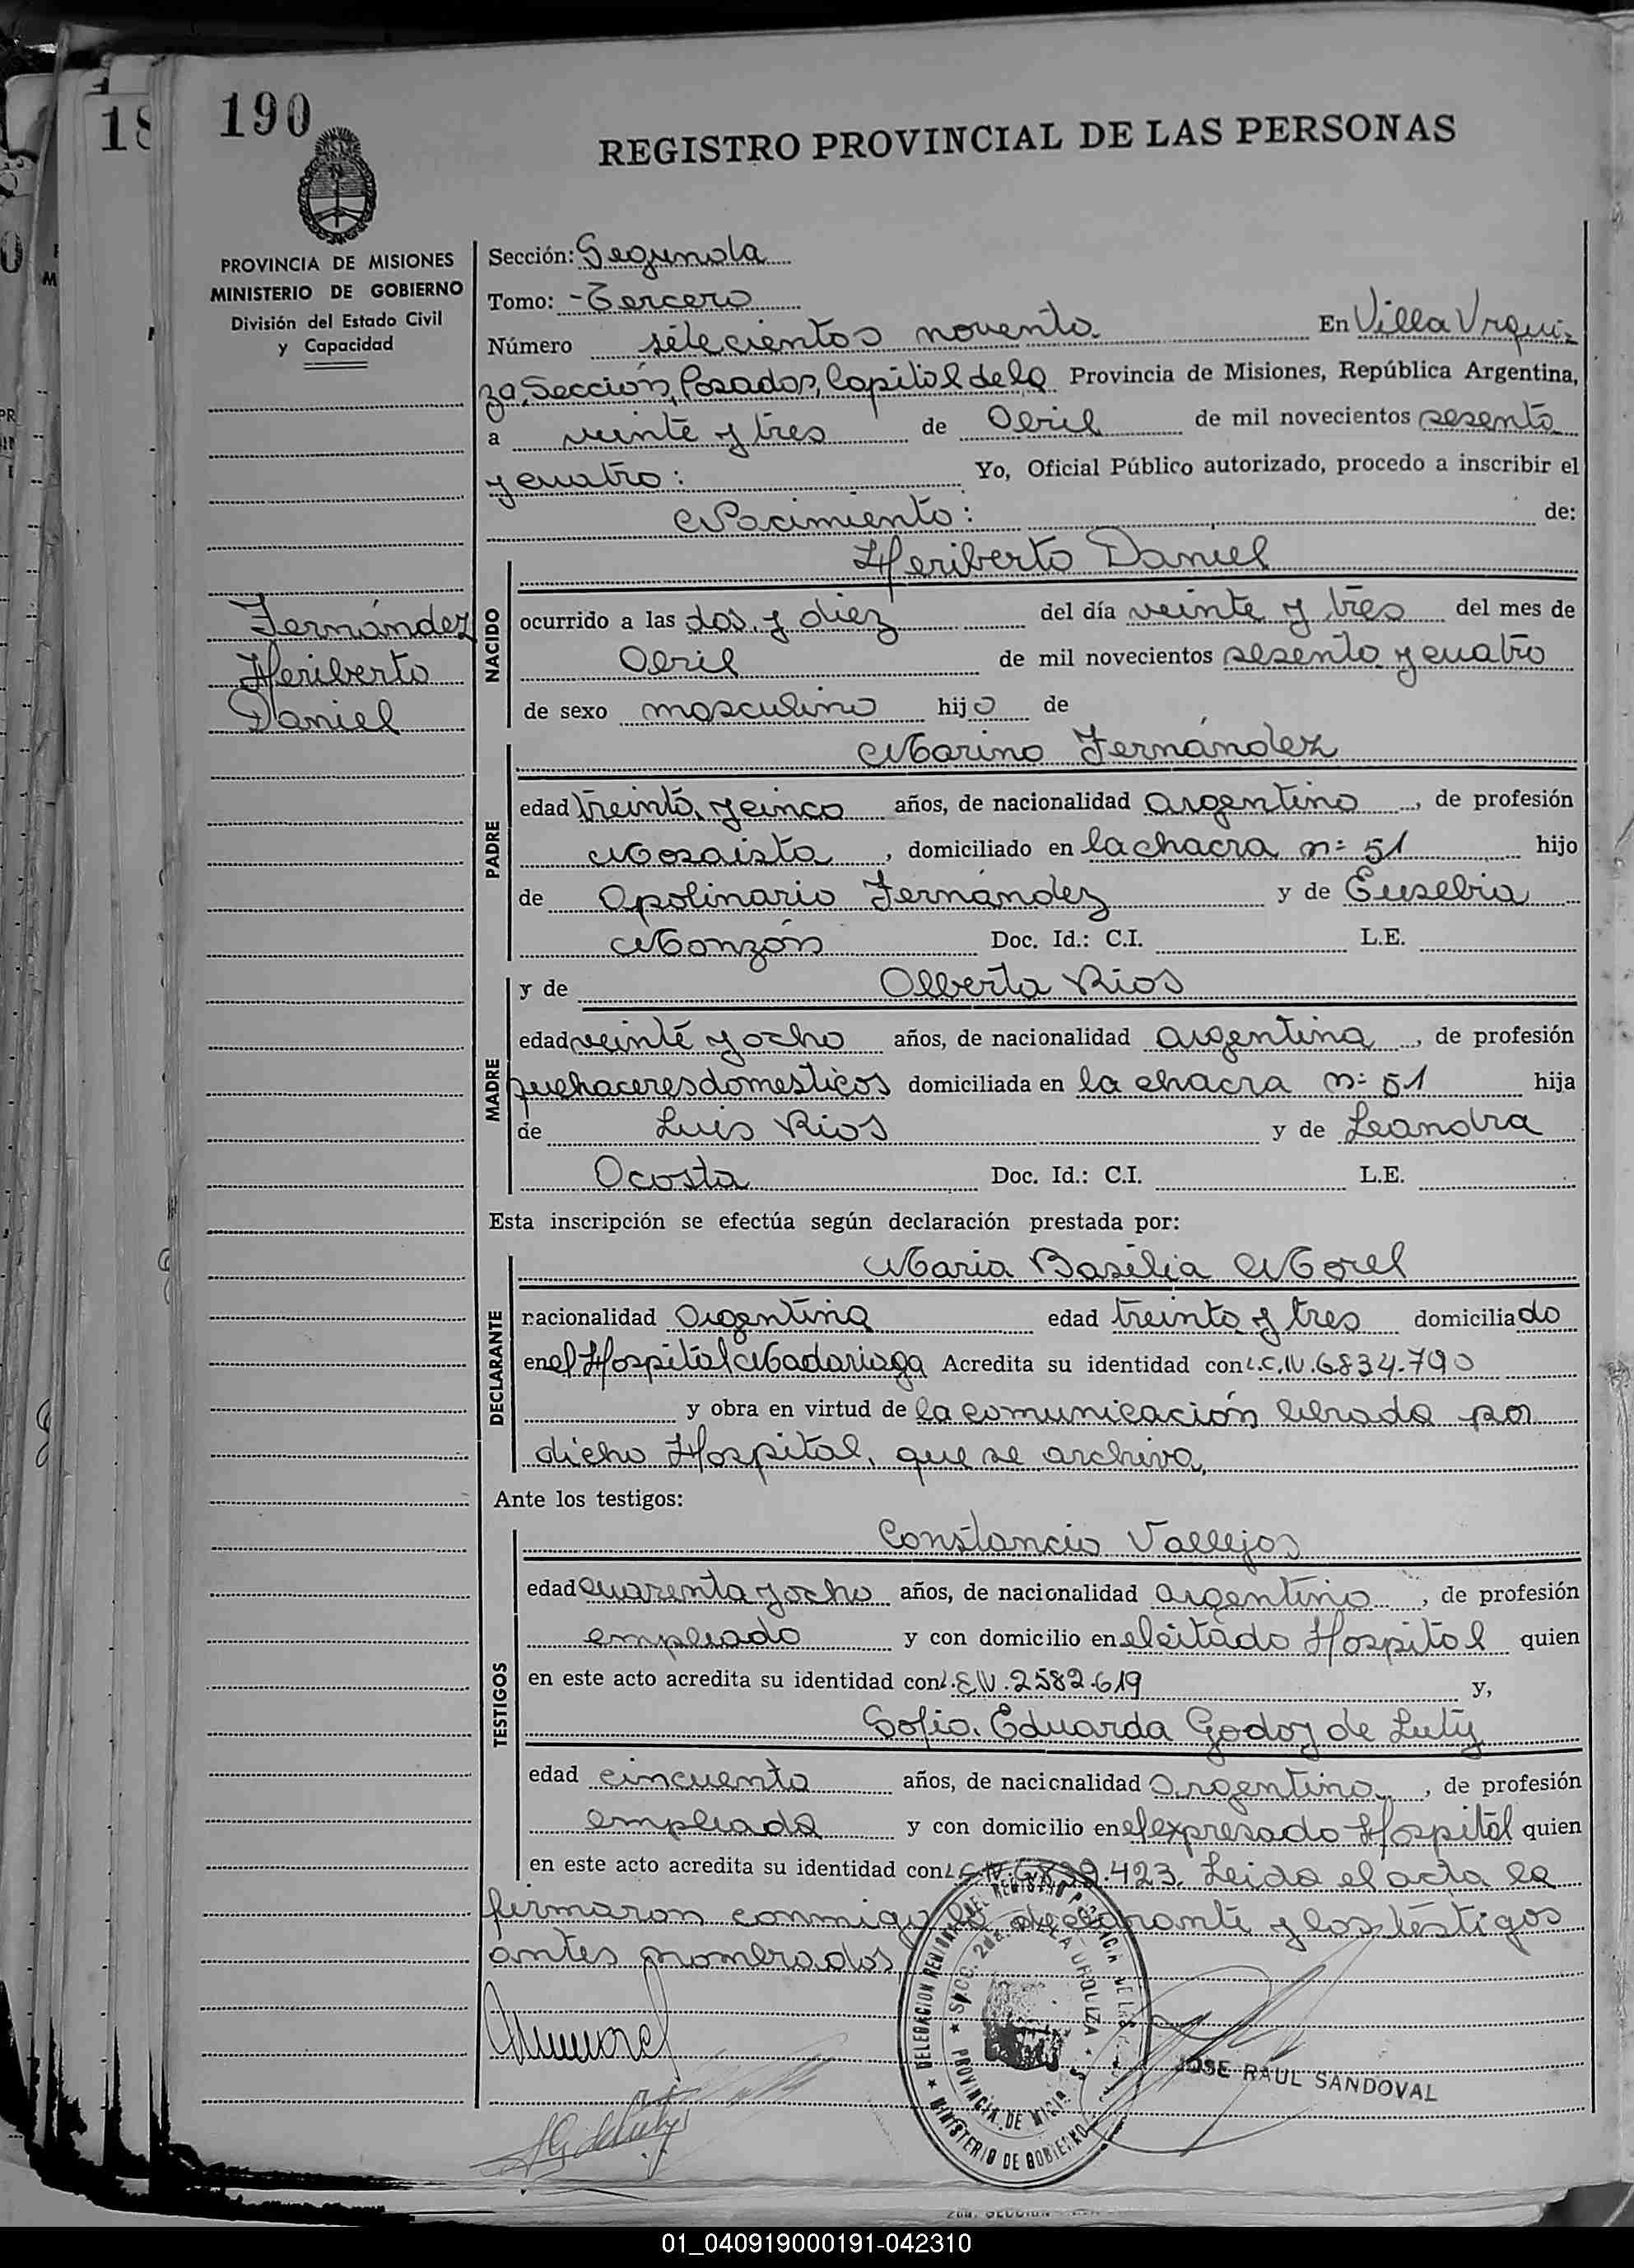 190
18
REGISTRO PROVINCIAL DE LAS PERSONAS
PROVINCIA DE MISIONES
MINISTERIO DE GOBIERNO
División del Estado Civil
y Capacidad
Fernández
Heriberto
Daniel
Sección: Segunda
Tomo: - Tercero
Número setecientos noventa En Villa Urqui-
za, Sección, Posadas, Capital de la Provincia de Misiones, República Argentina,
a veinte y tres de Abril de mil novecientos sesenta
y cuatro: Yo, Oficial Público autorizado, procedo a inscribir el
Nacimiento: de:
NACIDO
Heriberto Daniel
ocurrido a las dos y diez del día veinte y tres del mes de
Abril de mil novecientos sesenta y cuatro
de sexo masculino hijo de
PADRE
Marino Fernández
edad treinta y cinco años, de nacionalidad argentino, de profesión
Mosaista, domiciliado en la chacra nº 51 hijo
de Apolinario Fernández y de Eusebia
Monzón Doc. Id.: C.I. L.E.
MADRE
y de Alberta Rios
edad veinte y ocho años, de nacionalidad argentina, de profesión
quehaceres domesticos domiciliada en la chacra nº 51 hija
de Luis Rios y de Leandra
Acosta Doc. Id.: C.I. L.E.
Esta inscripción se efectúa según declaración prestada por:
DECLARANTE
Maria Basilia Morel
nacionalidad Argentina edad treinta y tres domiciliado
en el Hospital Madariaga Acredita su identidad con L.C.N. 6834.790
y obra en virtud de la comunicación librada por
dicho Hospital, que se archiva,
Ante los testigos:
TESTIGOS
Constancio Vallejos
edad cuarenta y ocho años, de nacionalidad argentino, de profesión
empleado y con domicilio en el citado Hospital quien
en este acto acredita su identidad con L.E.N. 2582.619 y,
Sofia Eduarda Godoy de Luty
edad cincuenta años, de nacionalidad Argentina, de profesión
empleada y con domicilio en el expresado Hospital quien
en este acto acredita su identidad con L.C.N. 6839.423. Leida el acta la
firmaron conmigo la declarante y los testigos
antes nombrados
DELEGACION REGIONAL DEL REGISTRO PROVINCIAL DE LAS
MINISTERIO DE GOBIERNO
SECC. 2da. VILLA URQUIZA
PROVINCIA DE MISIONES
JOSE RAUL SANDOVAL
01_040919000191-042310